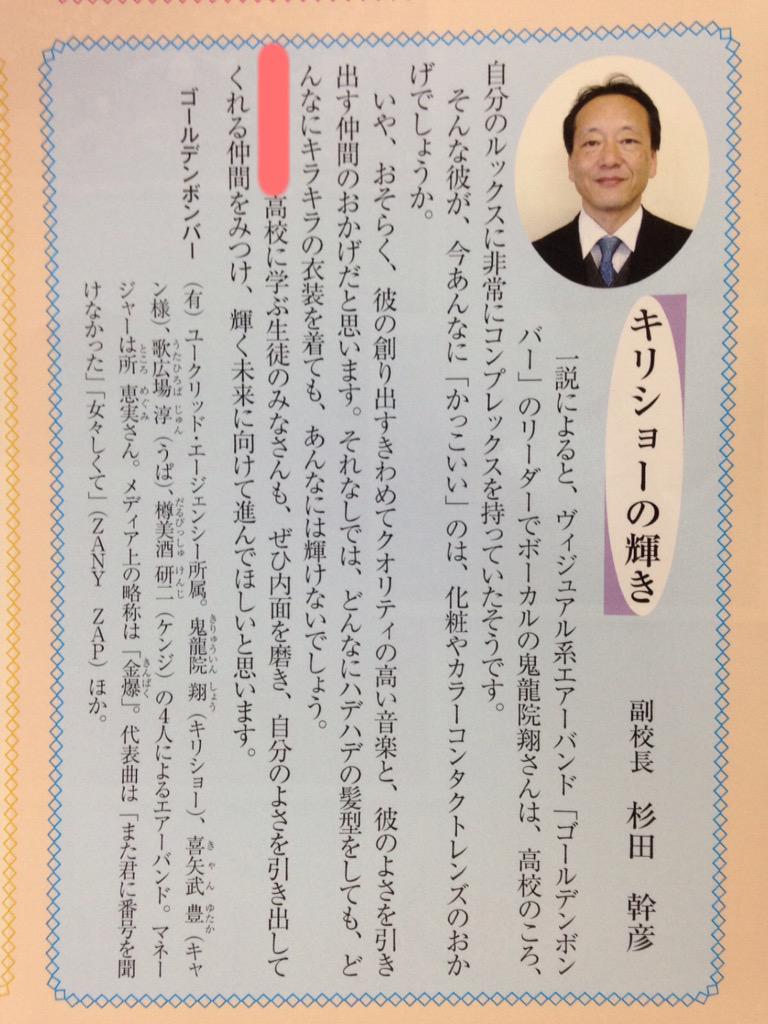 キリショーの輝き
副校長 杉田 幹彦
一説によると、ヴィジュアル系エアーバンド「ゴールデンボン
バー」のリーダーでボーカルの鬼龍院翔さんは、高校のころ、
自分のルックスに非常にコンプレックスを持っていたそうです。
そんな彼が、今あんなに「かっこいい」のは、化粧やカラーコンタクトレンズのおか
げでしょうか。
いや、おそらく、彼の創り出すきわめてクオリティの高い音楽と、彼のよさを引き
出す仲間のおかげだと思います。それなしでは、どんなにハデハデの髪型をしても、ど
んなにキラキラの衣装を着ても、あんなには輝けないでしょう。
高校に学ぶ生徒のみなさんも、ぜひ内面を磨き、自分のよさを引き出して
くれる仲間をみつけ、輝く未来に向けて進んでほしいと思います。
ゴールデンボンバー
(有)ユークリッド・エージェンシー所属。鬼龍院 翔(キリショー)、喜矢武 豊(キャ
きりゅういん しょう きゃん ゆたか
ン様)、歌広場 淳(うぱ)樽美酒 研二(ケンジ)の4人によるエアーバンド。マネー
うたひろば じゅん だるびっしゅ けんじ
ジャーは所 恵実さん。メディア上の略称は「金爆」。代表曲は「また君に番号を聞
ところ めぐみ きんばく
けなかった」「女々しくて」(ZANY ZAP)ほか。